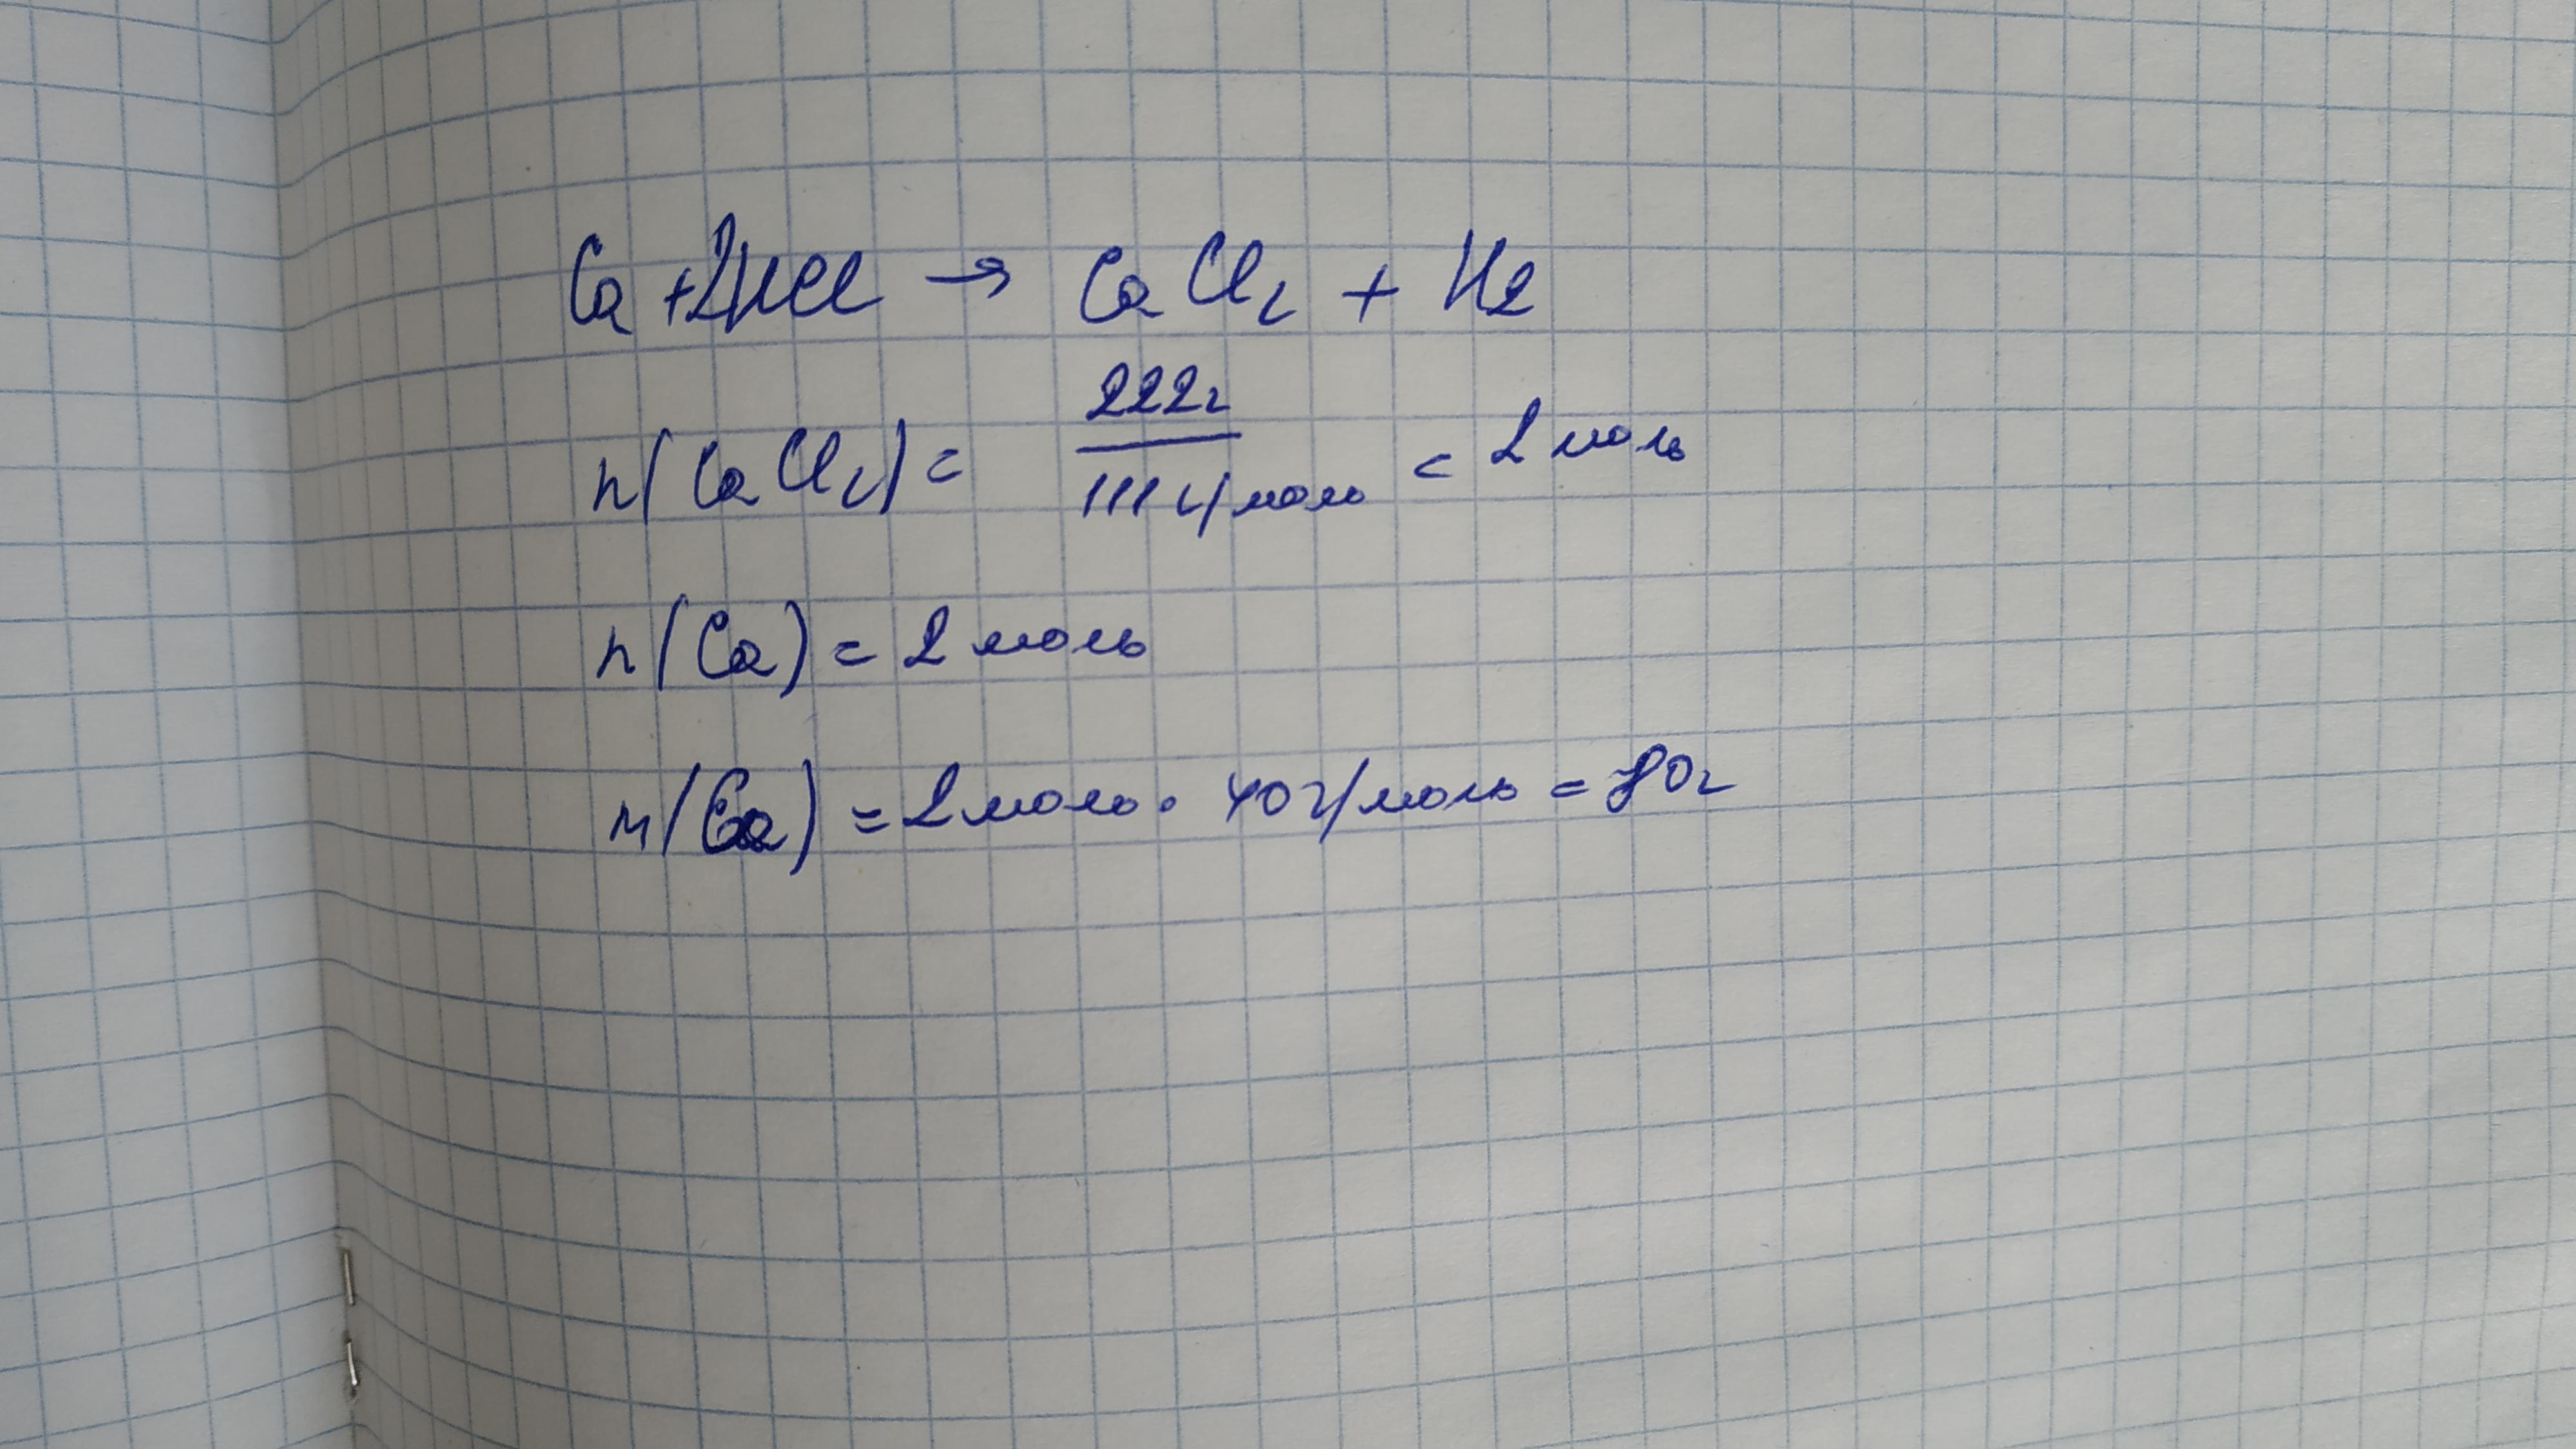 Ca + 2HCl → CaCl2 + H2
n(CaCl2) = 222г / 111 г/моль = 2 моль
n(Ca) = 2 моль
m(Ca) = 2 моль · 40 г/моль = 80г